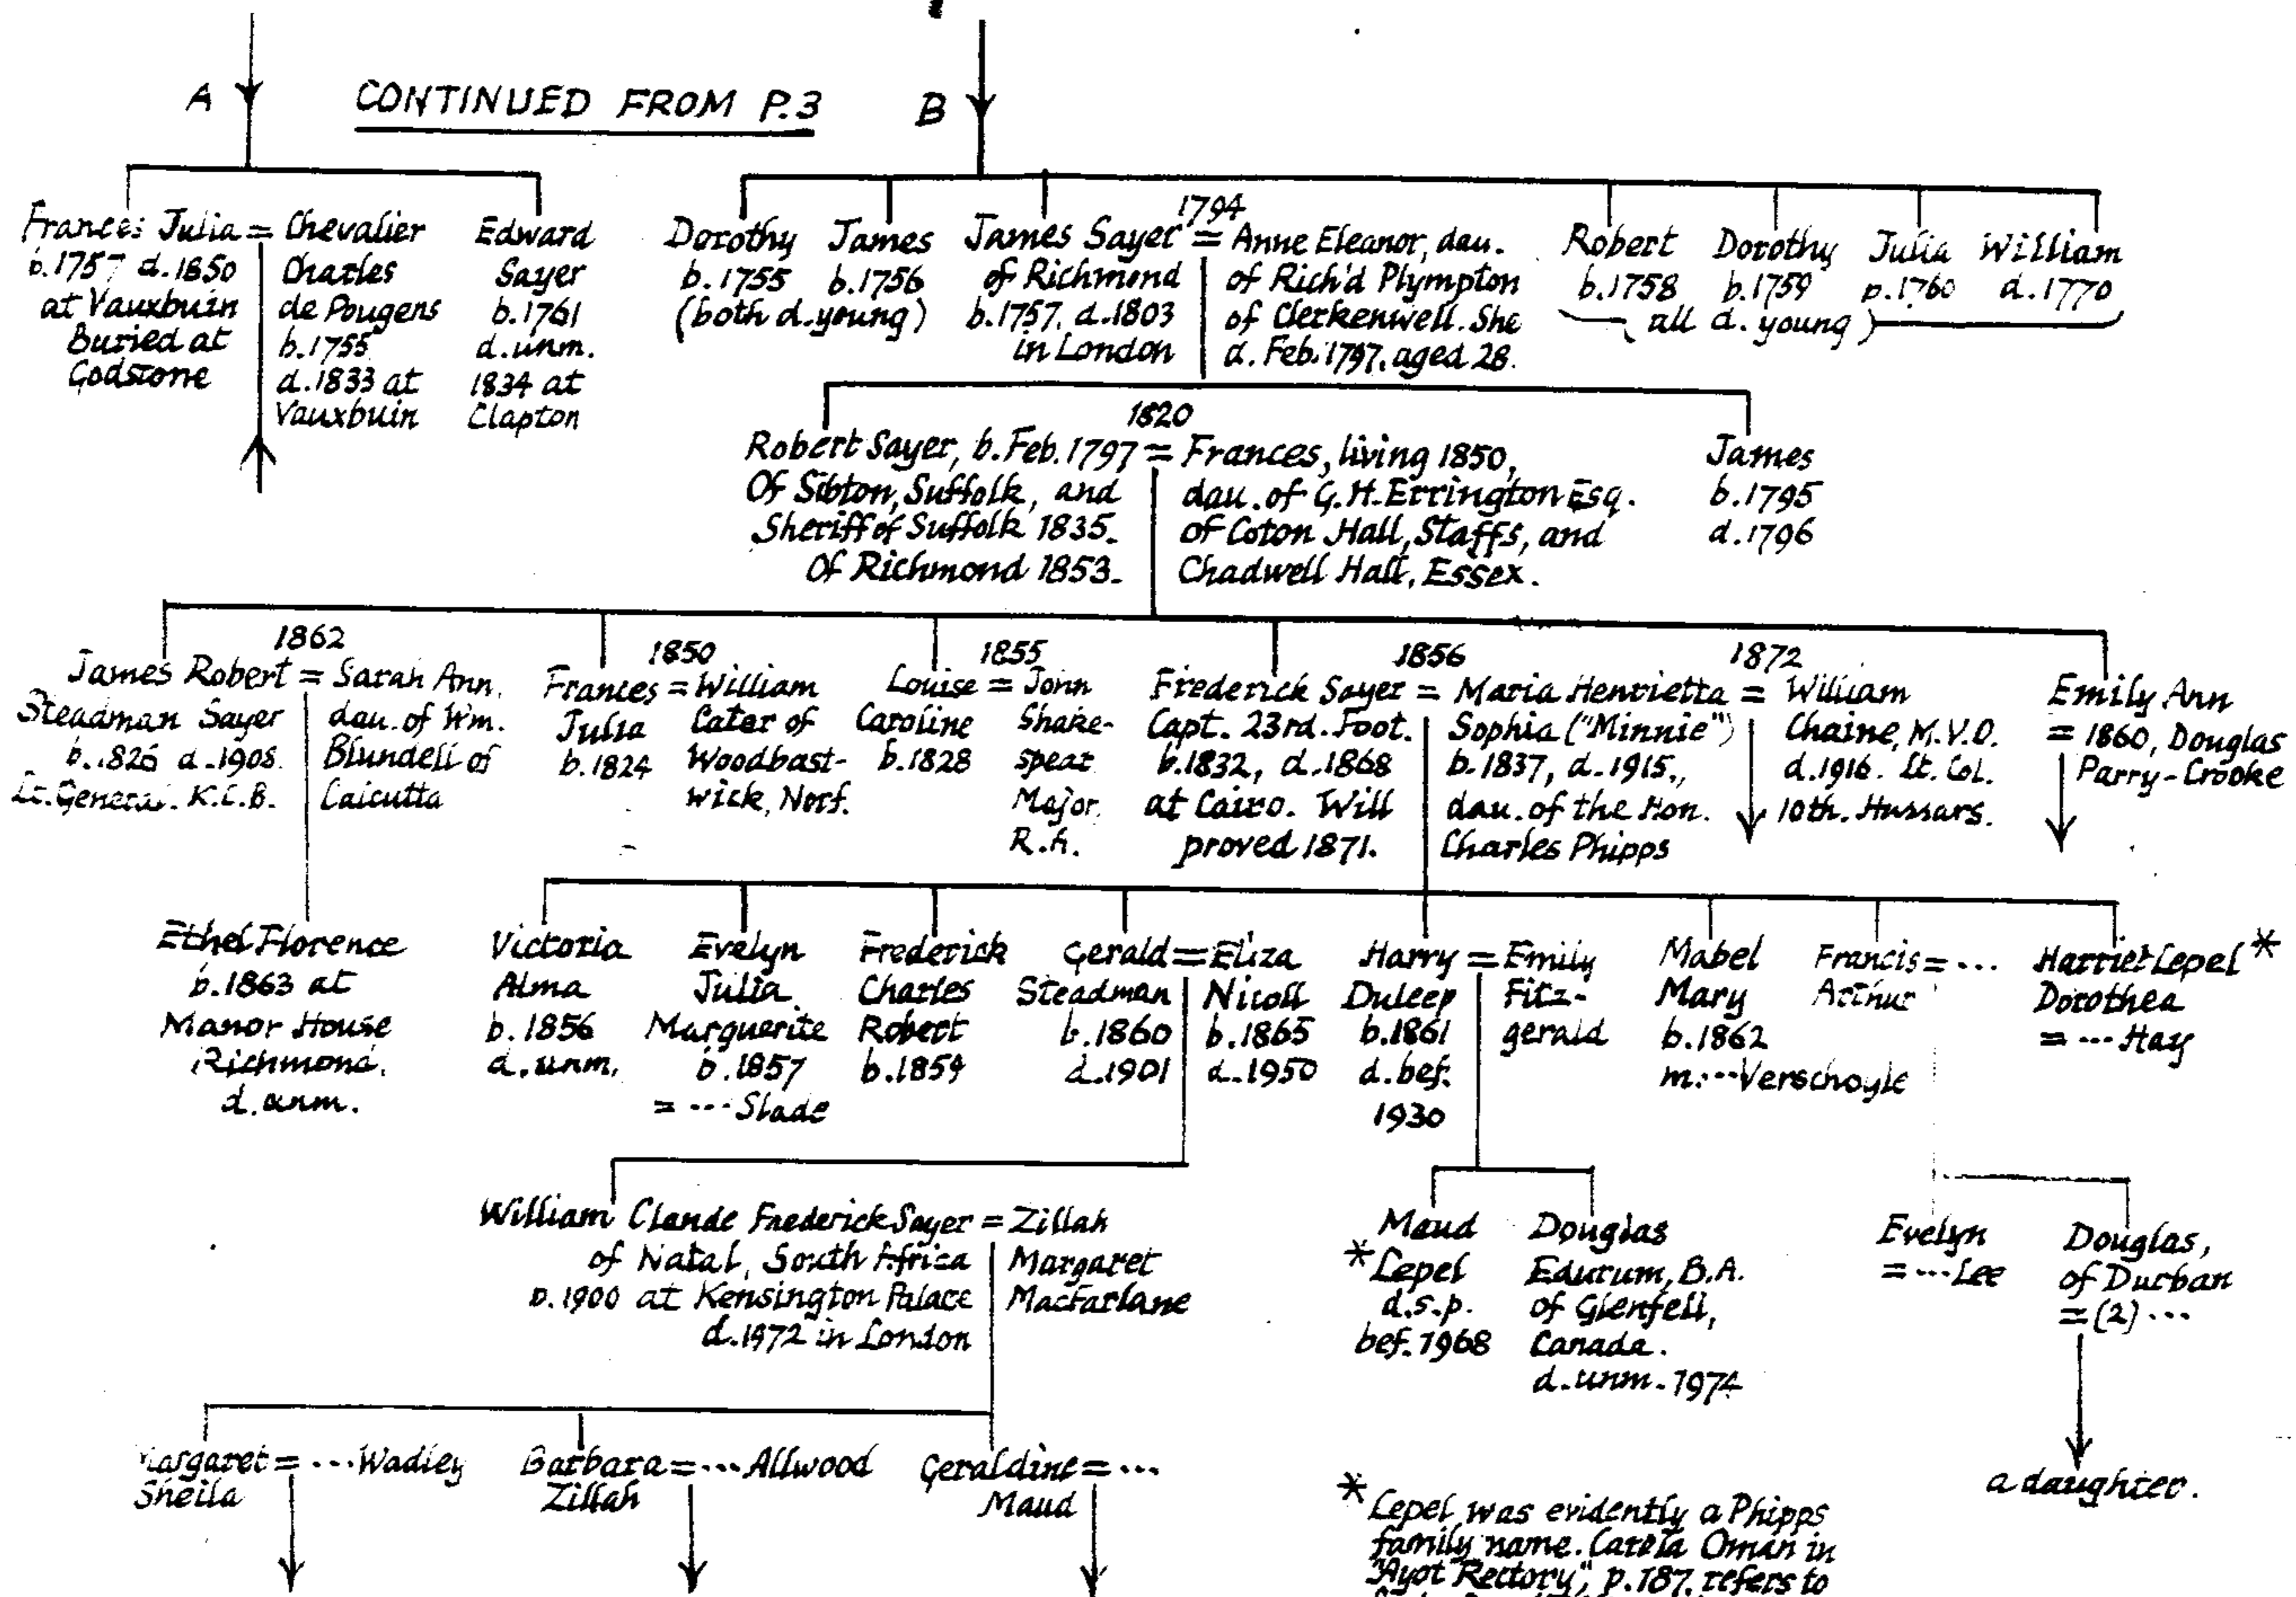 A
CONTINUED FROM P.3
B
Frances Julia = Chevalier
b.1757 d.1850
at Vauxbuin
Buried at
Godstone
Charles
de Pougens
b.1755
d.1833 at
Vauxbuin
Edward
Sayer
b.1761
d.unm.
1834 at
Clapton
Dorothy
b.1755
James
b.1756
(both d.young)
1794
James Sayer = Anne Eleanor, dau.
of Richmond
b.1757, d.1803
in London
of Rich'd Plympton
of Clerkenwell. She
d. Feb. 1797, aged 28.
Robert
b.1758
Dorothy
b.1759
Julia
b.1760
William
d.1770
(all d. young)
1820
Robert Sayer, b. Feb. 1797 = Frances, living 1850,
Of Sibton, Suffolk, and
Sheriff of Suffolk 1835.
Of Richmond 1853.
dau. of G.H. Errington Esq.
of Coton Hall, Staffs, and
Chadwell Hall, Essex.
James
b.1795
d.1796
1862
James Robert = Sarah Ann,
Steadman Sayer
d.1908.
Lt. General. K.C.B.
dau. of Wm.
Blundell of
Calcutta
1850
Frances = William
Julia
b.1824
Cater of
Woodbast-
wick, Norf.
1855
Louise = John
Caroline
b.1828
Shake-
spear
Major
R.A.
1856
Frederick Sayer = Maria Henrietta
Capt. 23rd. Foot.
b.1832, d.1868
at Cairo. Will
proved 1871.
Sophia ("Minnie")
b.1837, d.1915,
dau. of the Hon.
Charles Phipps
1872
= William
Chaine, M.V.O.
d.1916. Lt. Col.
10th. Hussars.
Emily Ann
= 1860, Douglas
Parry-Crooke
Ethel Florence
b.1863 at
Manor House
Richmond.
d.unm.
Victoria
Alma
b.1856
d.unm.
Evelyn
Julia
Marguerite
b.1857
= ... Slade
Frederick
Charles
Robert
b.1859
Gerald = Eliza
Steadman
b.1860
d.1901
Nicoll
b.1865
d.1950
Harry = Emily
Duleep
b.1861
d.bef.
1930
Fitz-
gerald
Mabel
Mary
b.1862
m. ... Verschoyle
Francis = ...
Arthur
Harriet Lepel *
Dorothea
= ... Hay
William Claude Frederick Sayer = Zillah
of Natal, South Africa
b.1900 at Kensington Palace
d.1972 in London
Margaret
MacFarlane
Maud
*Lepel
d.s.p.
bef. 1968
Douglas
Edurum, B.A.
of Glenfell,
Canada.
d.unm. 1974
Evelyn
= ... Lee
Douglas,
of Durban
= (2) ...
Margaret = ... Wadley
Sheila
Barbara = ... Allwood
Zillah
Geraldine = ...
Maud
a daughter.
* Lepel was evidently a Phipps
family name. Carola Oman in
"Ayot Rectory", p.187, refers to